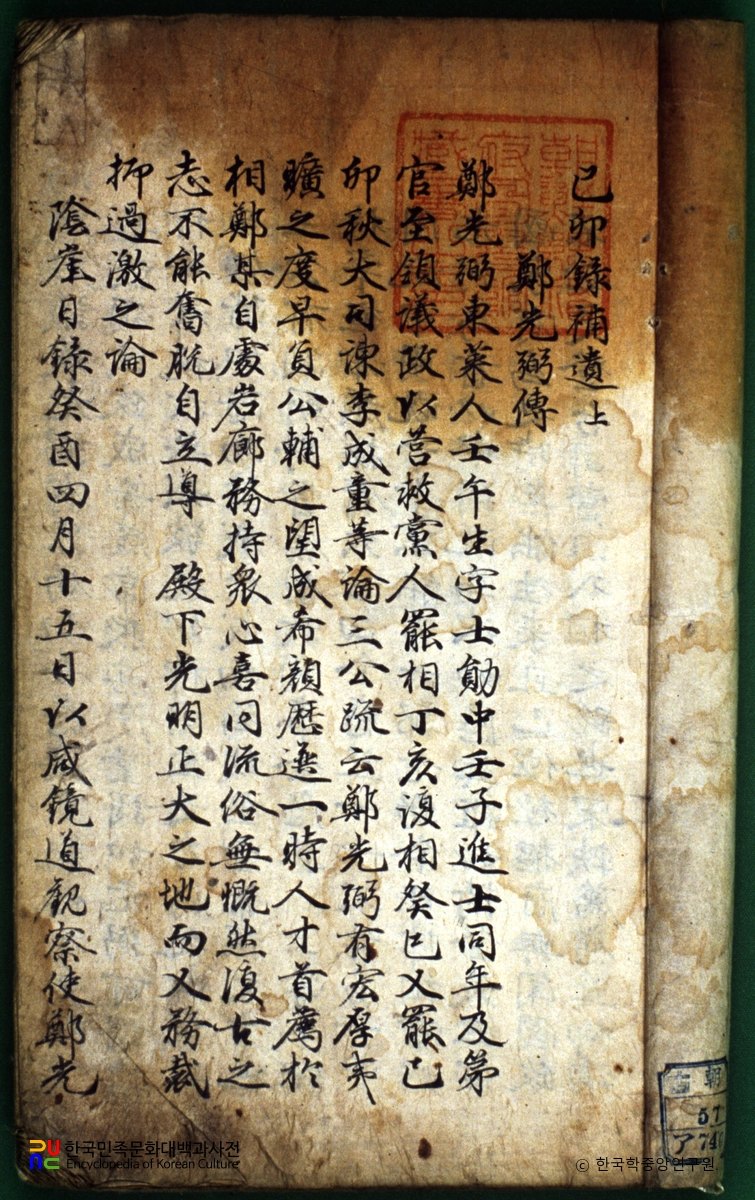 己卯錄補遺上
鄭光弼傳
鄭光弼東萊人壬午生字士勛中壬子進士同年及第
官至領議政以營救黨人罷相丁亥復相癸巳又罷己
卯秋大司諫李成童等論三公疏云鄭光弼有宏厚夷
曠之度早負公輔之望成希顔歷選一時人才首薦於
相鄭某自處岩廊務持衆心喜同流俗無慨然復古之
志不能奮脫自立導 殿下光明正大之地而又務裁
抑過激之論
陰崖日錄癸酉四月十五日以咸鏡道觀察使鄭光
朝
57
ア74
한국민족문화대백과사전
Encyclopedia of Korean Culture
© 한국학중앙연구원